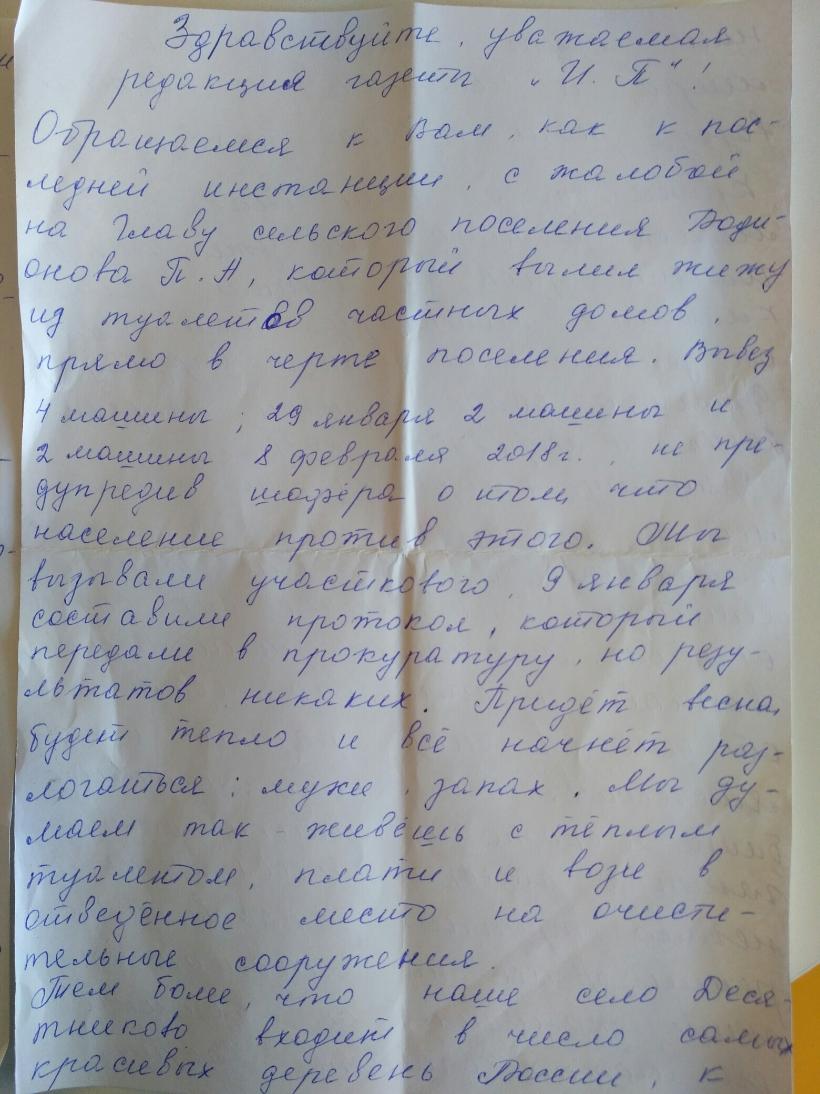 Здравствуйте, уважаемая
редакция газеты "И. П"!
Обращаемся к Вам, как к пос-
ледней инстанции, с жалобой
на Главу сельского поселения Роди-
онова П.А, который вылил жижу
из туалетов частных домов,
прямо в черте поселения. Вывез
4 машины; 29 января 2 машины и
2 машины 8 февраля 2018г., не пре-
дупредив шофёра о том, что
население против этого. Мы
вызывали участкового, 9 января
составили протокол, который
передали в прокуратуру, но резу-
льтатов никаких. Придёт весна,
будет тепло и всё начнёт раз-
логаться: мухи, запах. Мы ду-
маем так - живёшь с тёплым
туалетом, плати и вози в
отведённое место на очисти-
тельные сооружения.
Тем более, что наше село Деся-
тниково входит в число самых
красивых деревень России, к